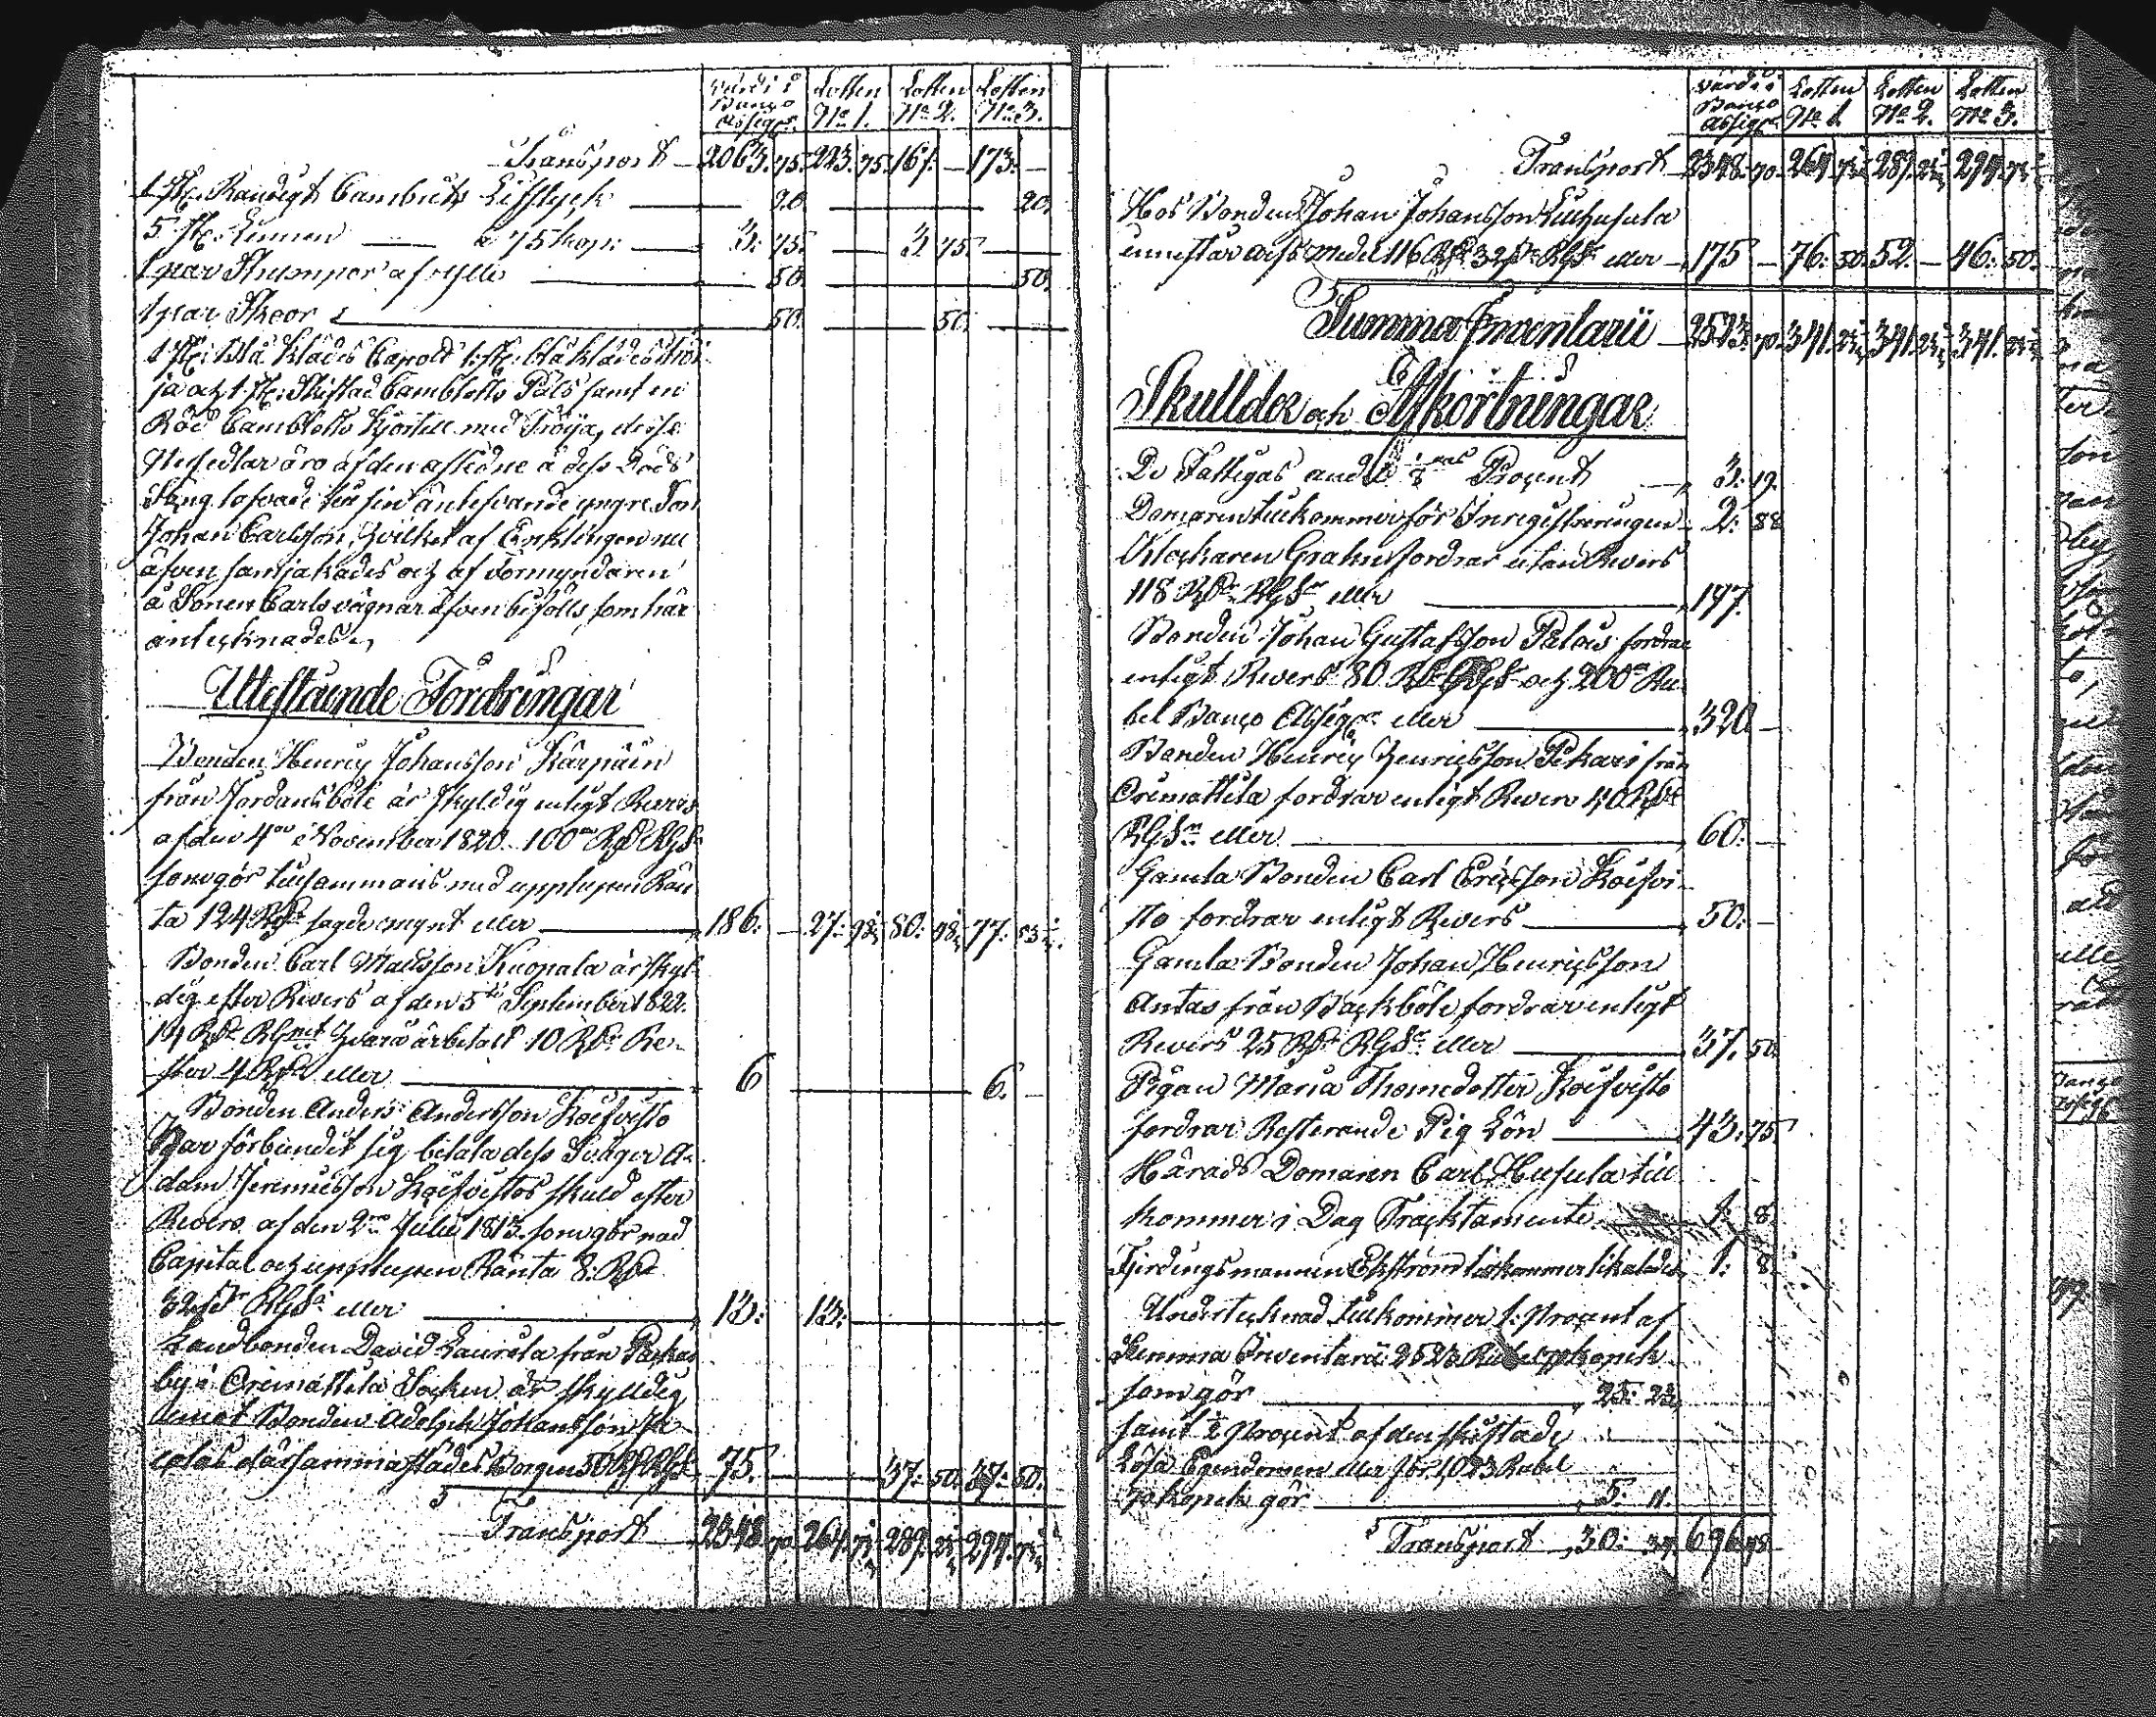 Värd i Banco Assign: Lotten No 1. Lotten No 2. Lotten No 3.
Transport 2063. 75. 223. 75. 167. — 173. —
1 st: Randigt Cambrits Lifstyck — 20. — 20.
5 st: Linnen — a 75 kop: — 3. 75. — 3. 75. —
1 par Strumpor af ylle — 50. — 50.
1 par Skor — 50. — 50. —
1 st: blå klädes Capott 1 st: blå klädes tröi
ja och 1 st: Skiftad Cambletts Päls samt en
Röd Cambletts Kjortell med Tröija, desse
Persedlar äro af den aflidne å dess Döds
Säng lofvade till sin äntefvande yngre Son
Johan Carlsson, hvilket af Enklingen nu
äfven samjakades och af Förmyndaren
å Sonen Carls vägnar äfven bifölls som här
antecknades.
Utestående Fordringar
Bonden Henric Johansson Kärpäin
från Jordansböle är skyldig enligt Revers
af den 4de November 1820. 100de Rd RGS
som gör tillsammans med upplupen Rän
ta 124 Rdr sagde mynt eller — 186. — 27. 98½ 80. 98½ 77. 53
Bonden Carl Matsson Kuopala är skyl
dig efter Revers af den 5te September 1822.
14 Rdr RGmt hvarå är betalt 10 Rdr Re-
ster 4 Rdr eller — 6 — 6. —
Bonden Anders Andersson Koifvisto
Har förbundet sig betala dess Svåger A-
dam Jeremiesson Koifvistos skuld efter
Revers af den 2ne Julii 1813. som gör med
Capital och upplupen Ränta 8. Rdr
32 st RGS eller — 13. 13. —
Landbonden David Laurila från Packas
by i Orimattila Socken är skylldig
emot Bonden Adolph Johansson
därsammastädes Borgen 50 Rd RGS 75. — 37. 50. 37. 50.
Transport 2348. 70. 264. 73½ 289. 23½ 294. 73½
Värd i Banco Assign Lotten No 1. Lotten No 2. Lotten No 3.
Transport 2348. 70. 264. 73½ 289. 23½ 294. 73½
Hos Bonden Johan Johansson Lillhusula
innestår arfs medel 116 Rdr 32 st RGS eller 175 — 76. 50. 52. — 46. 50.
Summa Inventarii 2523. 70. 341. 23½ 341. 23½ 341. 23½
Skullder och Afkortningar
De Fattigas andel ⅛dels Procent 3. 19.
Domaren tillkommer för Inregistreringen 2. 88
Klockaren Grahn fordrar utan Revers
118 Rdr RGS eller — 147.
Bonden Johan Gustafsson Palois fordrar
enligt Revers 80 Rdr RGS och 200de Ru
bel Banco Assign eller — 320 —
Bonden Henric Henricsson Pekari från
Orimattila fordrar enligt Revers 40 Rdr
RGS eller — 60. —
Gamla Bonden Carl Ericsson Koifvi-
sto fordrar enligt Revers — 50. —
Gamla Bonden Johan Henricsson
Antas från Backböle fordrar enligt
Revers 25 Rdr RGS eller — 37. 50
Pigan Maria Thomedotter Koifvisto
fordrar Resterande Pig Lön — 43. 75
Härads Domaren Carl Husula till
kommer i Dag Tracktamente 1. 8.
Fjerdingsmannen Ekström tillkommer likaledes 1. 8.
Undertecknad tillkommer 1. Procent af
Summa Inventarii 2523 Rubel 70 kopek
som gör — 25. 23.
samt ½ Procent af den skiftade
Lösa Egendomen eller för 1023 Rubel
70 kopek gör — 5. 11.
Transport 30. 34. 696. 98